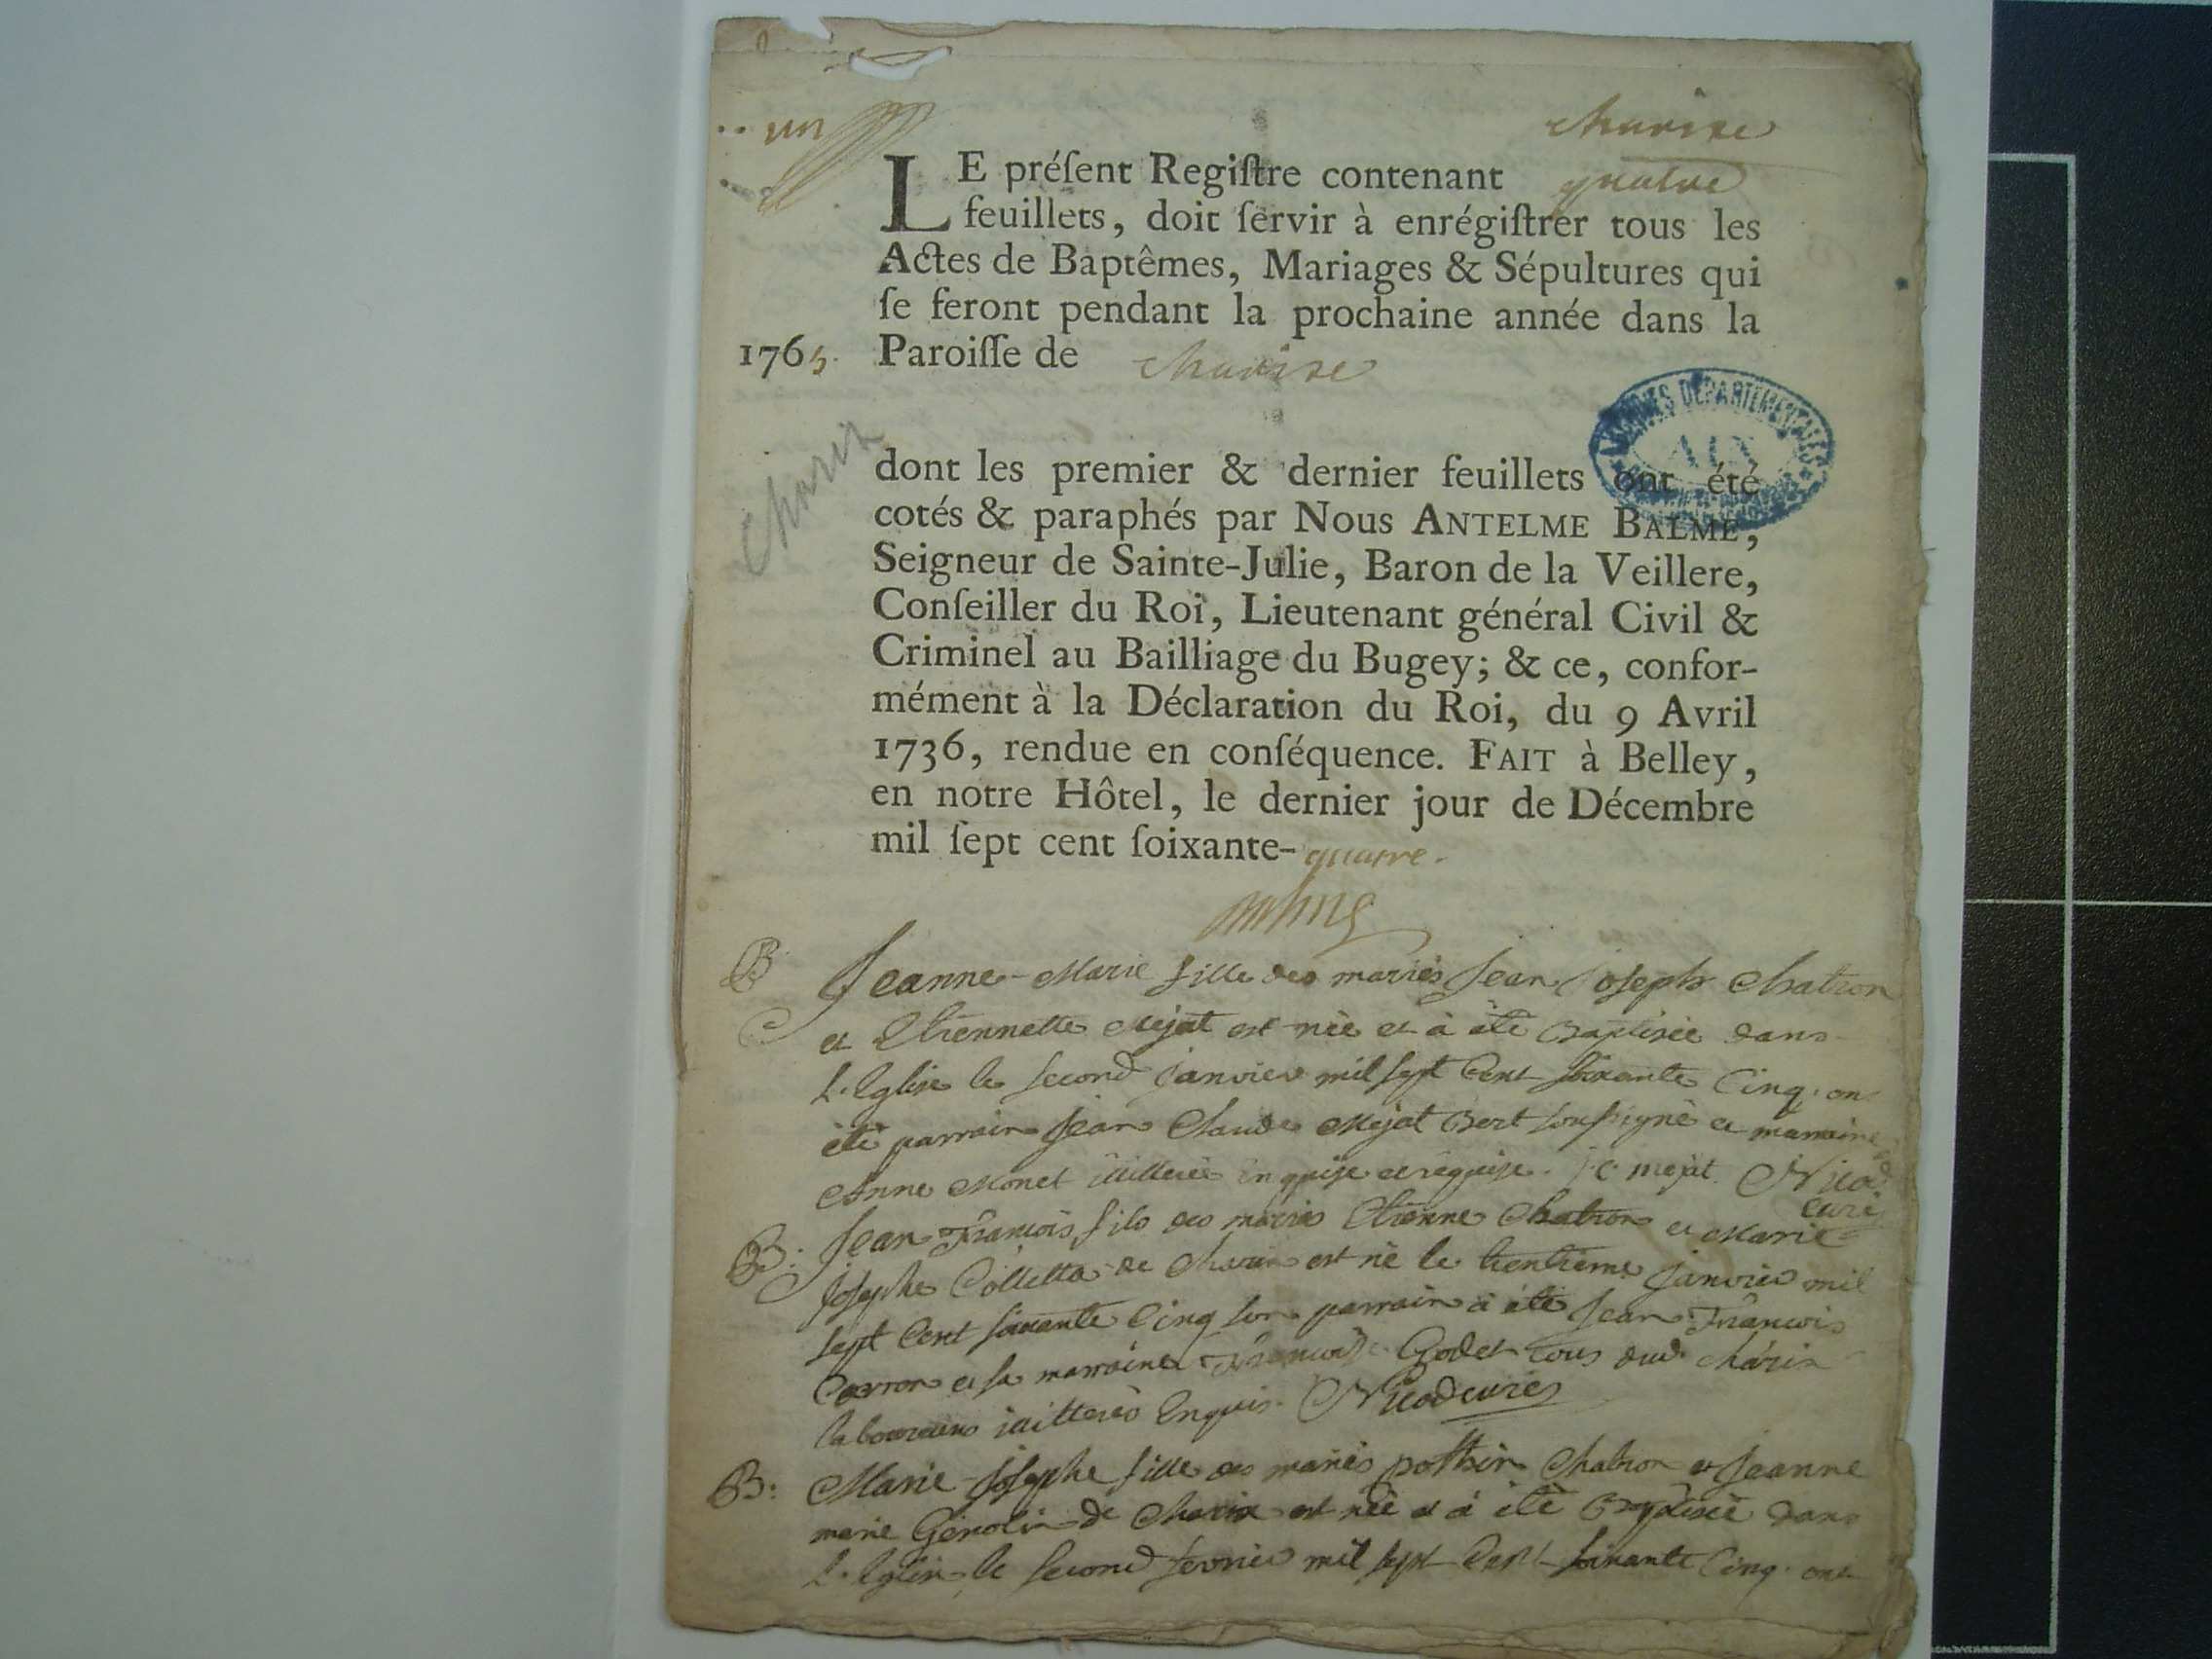 un
charixe
LE préſent Regiſtre contenant quatre
feuillets, doit ſervir à enrégiſtrer tous les
Actes de Baptêmes, Mariages & Sépultures qui
ſe feront pendant la prochaine année dans la
1765. Paroiſſe de charixe
ARCHIVES DÉPARTEMENTALES
AIN
Charix
dont les premier & dernier feuillets ont été
cotés & paraphés par Nous ANTELME BALME,
Seigneur de Sainte-Julie, Baron de la Veillere,
Conſeiller du Roi, Lieutenant général Civil &
Criminel au Bailliage du Bugey; & ce, confor-
mément à la Déclaration du Roi, du 9 Avril
1736, rendue en conſéquence. FAIT à Belley,
en notre Hôtel, le dernier jour de Décembre
mil ſept cent ſoixante-quatre.
B Jeanne-Marie fille des mariès Jean Joseph Chatron
et Etiennette Mejat est nèe et à ètè Baptisèe dans
L'Eglise le second janvier mil sept Cent soixante Cinq. on
ètè parrain Jean Claude Mejat Bert soussignè et marraine
Anne Monet illiterèe Enquise et requise. J C mejat. Nicod
Curè
B: Jean François fils des mariès Etienne Chatron et Marie
Josephe Colletta de Charix est nè le trentieme janvier mil
sept Cent soixante Cinq son parrain à ètè Jean François
Carron et sa marraine Françoise Godet tous dud. Charix
laboureurs illiterès Enquis. Nicod curè
B: Marie-Josephe fille des mariès pothin Chatron et Jeanne
marie Genolin de Charix est nèe et à ètè Baptisèe dans
L'Eglise le second fevrier mil sept Cent soixante Cinq. ont